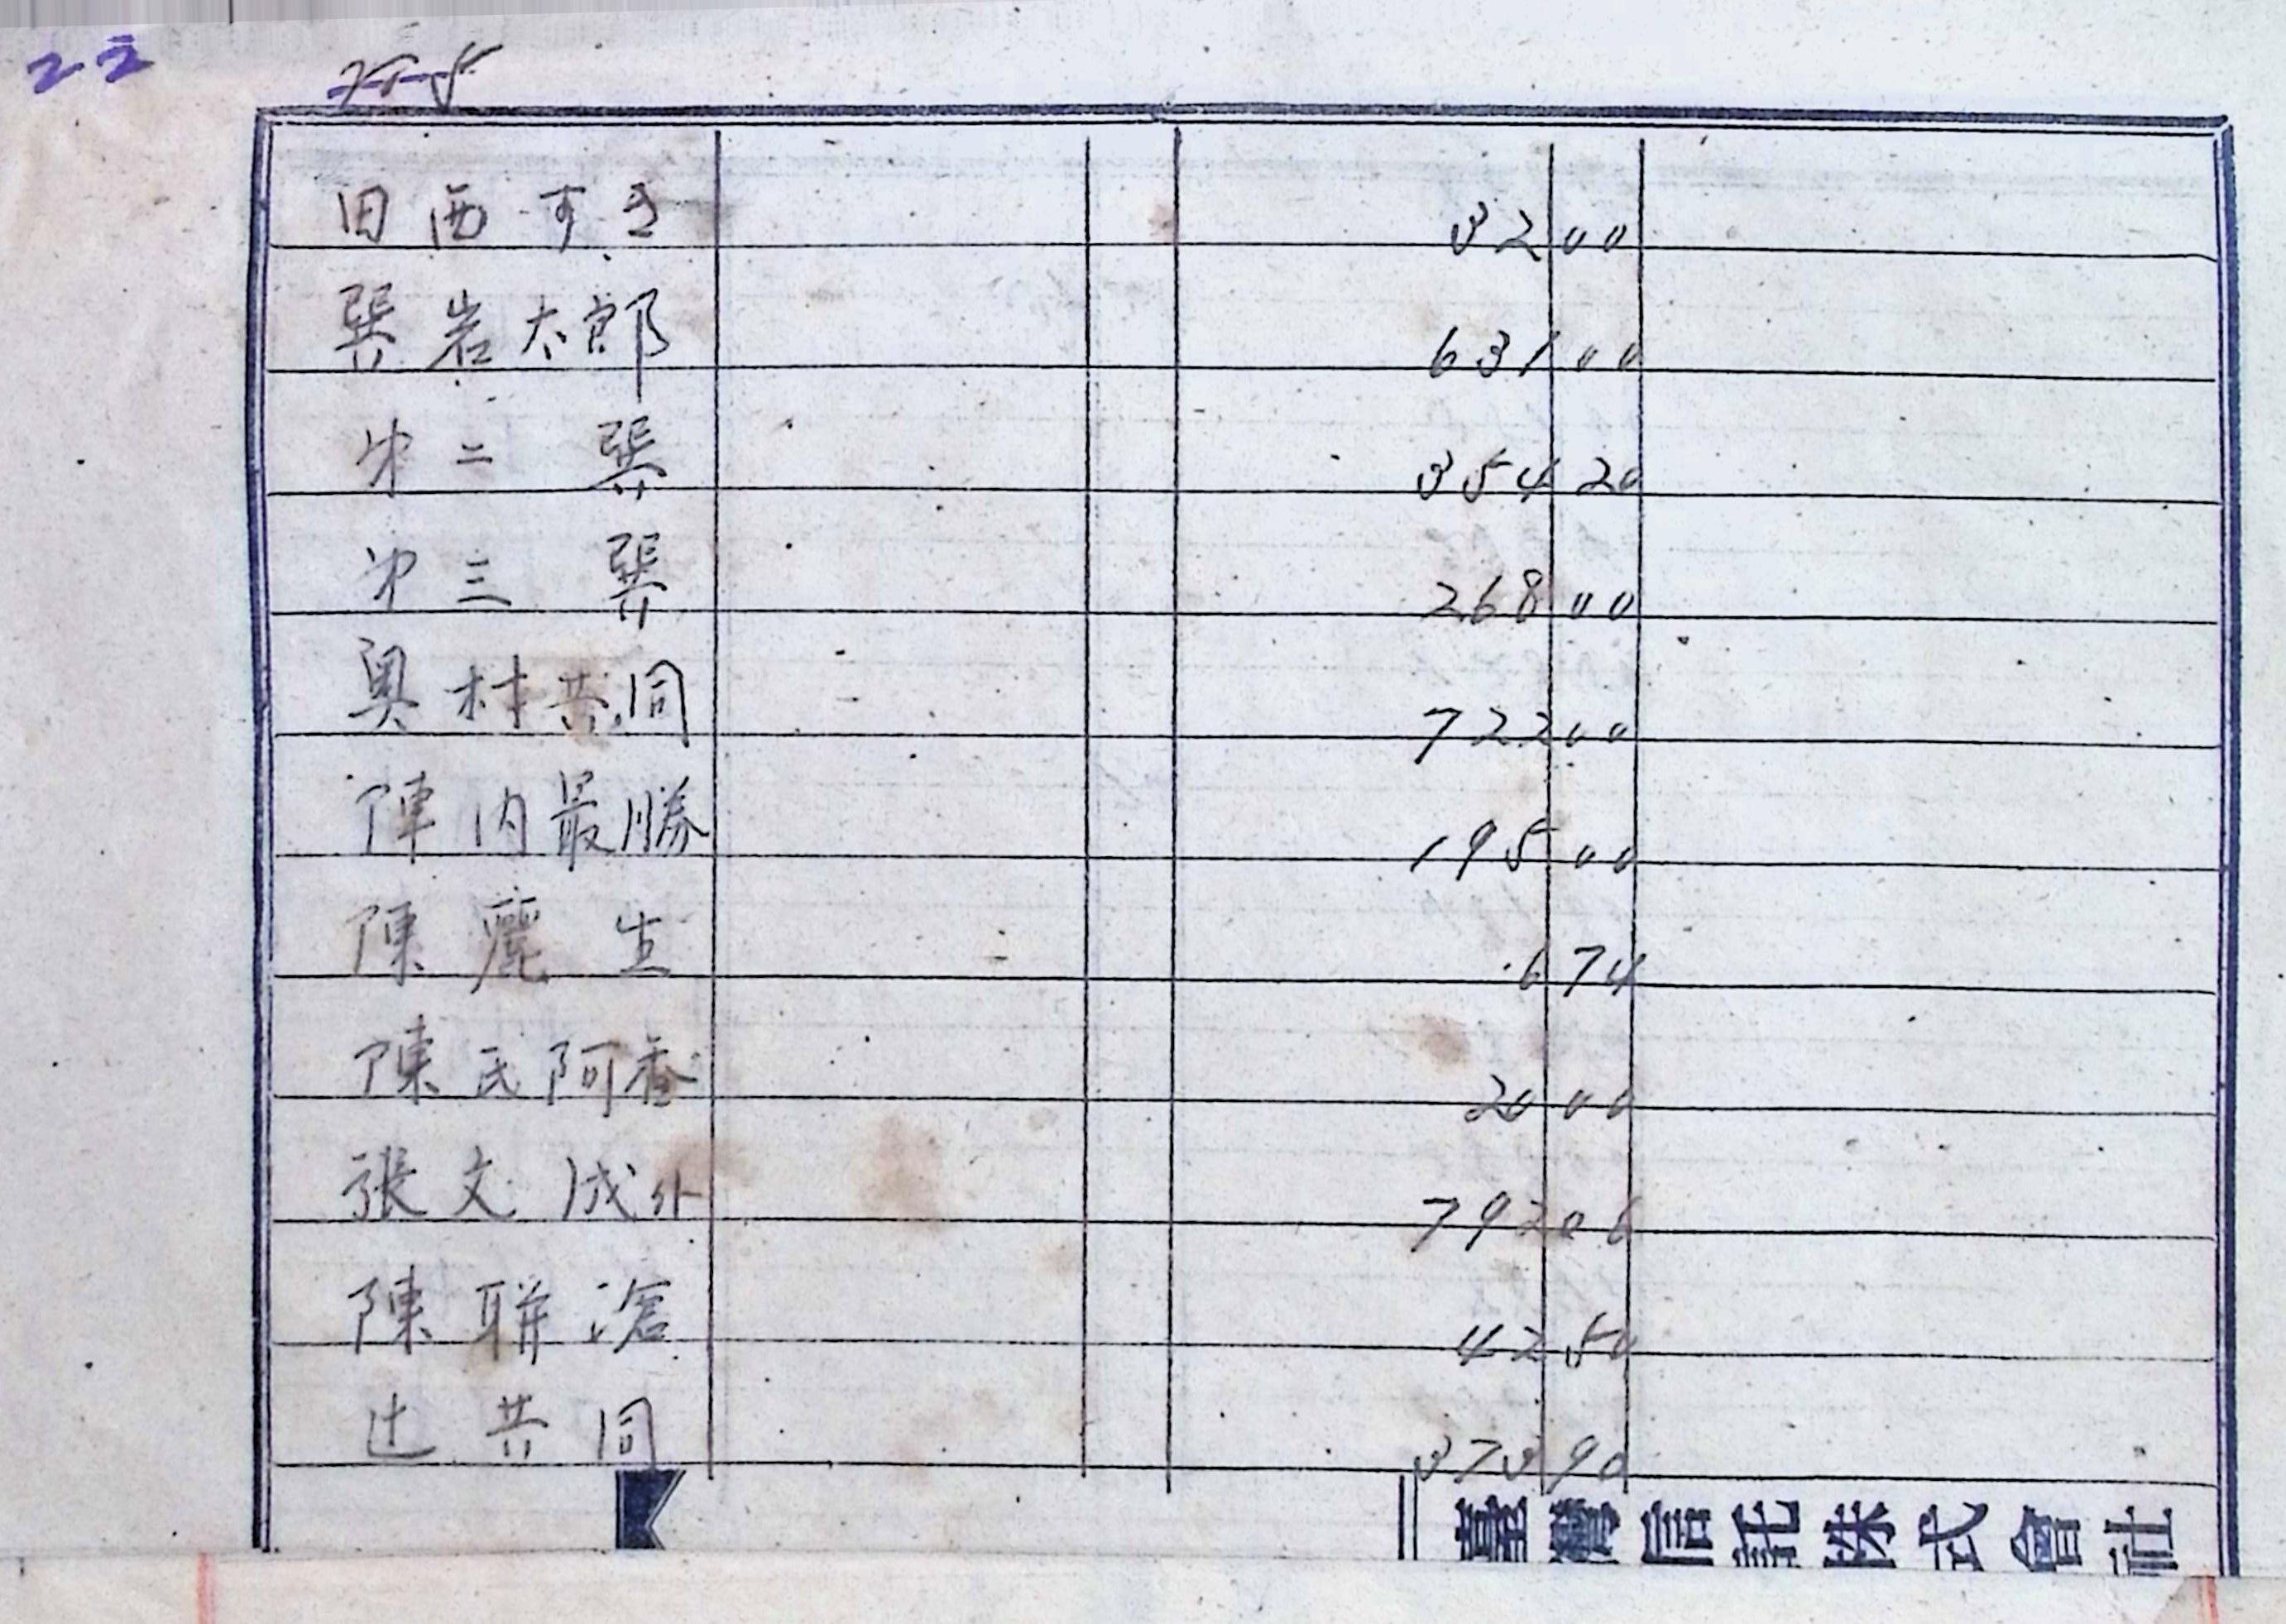 22
田西すゑ 32 00
巽岩太郎 631 00
才二 巽 354 20
才三 巽 268 00
奥村共同 722 00
陣内最勝 195 00
陳麗生 6 74
陳氏阿香 20 00
張文成外 792 06
陳聯滄 42 50
辻共同 373 90
臺灣信託株式會社